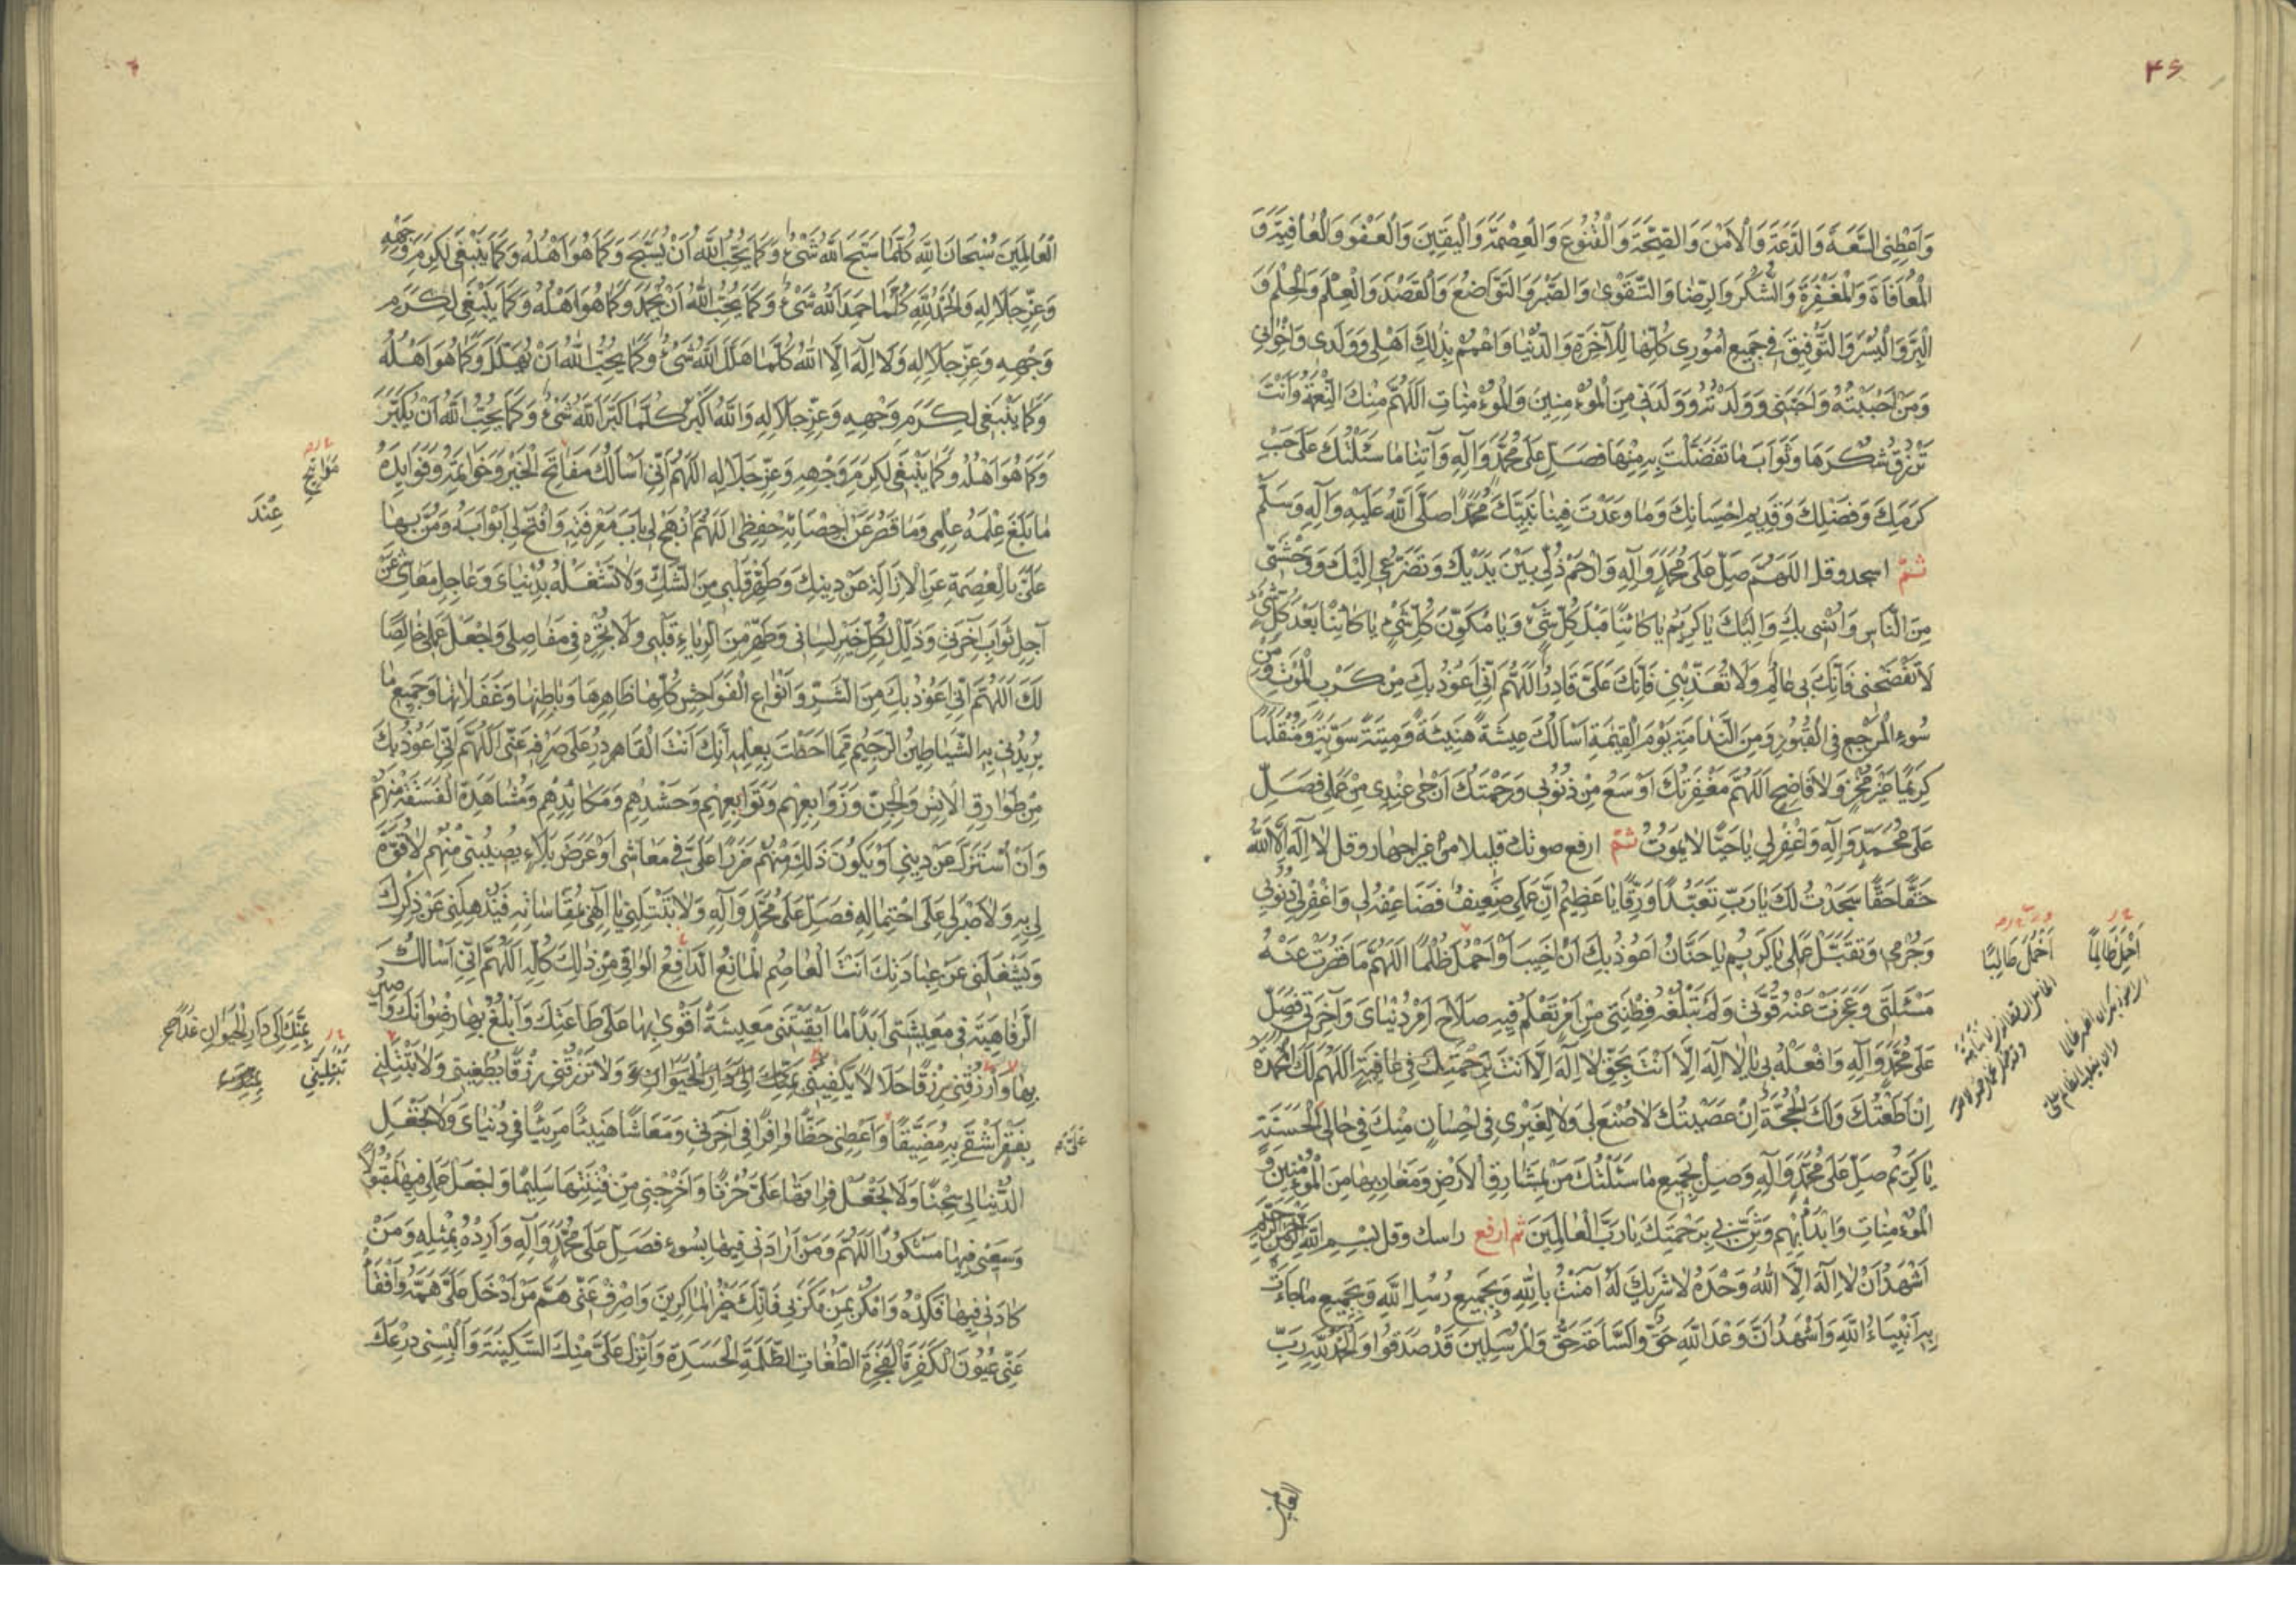 ۴۶
وَاَعْطِنِى السَّعَةَ وَالدَّعَةَ وَالْاَمْنَ وَالصِّحَّةَ وَالْقُنُوعَ وَالْعِصْمَةَ وَالْيَقِينَ وَالْعَفْوَ وَالْعٰافِيَةَ وَ
الْمُعٰافٰاةَ وَالْمَغْفِرَةَ وَالشُّكْرَ وَالرِّضٰا وَالتَّقْوىٰ وَالصَّبْرَ وَالتَّوٰاضُعَ وَالْقَصْدَ وَالْعِلْمَ وَالْحِلْمَ وَ
الْبِرَّ وَالْيُسْرَ وَالتَّوْفِيقَ فِى جَمِيعِ اُمُورِى كُلِّهٰا لِلْآخِرَةِ وَالدُّنْيٰا وَاعْمُمْ بِذٰلِكَ اَهْلِى وَوَلَدِى وَاِخْوٰانِى
وَمَنْ اَحْبَبْتُهُ وَاَحَبَّنِى وَوَلَدْتُهُ وَوَلَدَنِى مِنَ الْمُؤْمِنِينَ وَالْمُؤْمِنٰاتِ اَللّٰهُمَّ مِنْكَ النِّعْمَةُ وَاَنْتَ
تَرْزُقُ شُكْرَهٰا وَثَوٰابَ مٰا تَفَضَّلْتَ بِهِ مِنْهٰا فَصَلِّ عَلٰى مُحَمَّدٍ وَآلِهِ وَآتِنٰا مٰا سَئَلْنٰكَ عَلٰى حَبِّ
كَرَمِكَ وَفَضْلِكَ وَقَدِيمِ اِحْسٰانِكَ وَمٰا وَعَدْتَ فِينٰا نَبِيَّكَ مُحَمَّدًا صَلَّى اللّٰهُ عَلَيْهِ وَآلِهِ وَسَلَّمَ
ثمّ اسجد وقل اَللّٰهُمَّ صَلِّ عَلٰى مُحَمَّدٍ وَآلِهِ وَارْحَمْ ذُلِّى بَيْنَ يَدَيْكَ وَتَضَرُّعِى اِلَيْكَ وَوَحْشَتِى
مِنَ النّٰاسِ وَاُنْسِى بِكَ وَاِلَيْكَ يٰا كَرِيمُ يٰا كٰائِنًا قَبْلَ كُلِّ شَىْءٍ وَيٰا مُكَوِّنَ كُلِّ شَىْءٍ يٰا كٰائِنًا بَعْدَ كُلِّ شَىْءٍ
لٰا تَفْضَحْنِى فَاِنَّكَ بِى عٰالِمٌ وَلٰا تُعَذِّبْنِى فَاِنَّكَ عَلَىَّ قٰادِرٌ اَللّٰهُمَّ اِنِّى اَعُوذُ بِكَ مِنْ كَرْبِ الْمَوْتِ وَمِنْ
سُوءِ الْمَرْجِعِ فِى الْقُبُورِ وَمِنَ النَّدٰامَةِ يَوْمَ الْقِيٰمَةِ اَسْاَلُكَ عِيشَةً هَنِيئَةً وَمِيتَةً سَوِيَّةً وَمُنْقَلَبًا
كَرِيمًا غَيْرَ مُخْزٍ وَلٰا فٰاضِحٍ اَللّٰهُمَّ مَغْفِرَتُكَ اَوْسَعُ مِنْ ذُنُوبِى وَرَحْمَتُكَ اَرْجٰى عِنْدِى مِنْ عَمَلِى فَصَلِّ
عَلٰى مُحَمَّدٍ وَآلِهِ وَاغْفِرْ لِى يٰا حَيًّا لٰا يَمُوتُ ثمّ ارفع صوتك قليلا من غير اجهار وقل لٰا اِلٰهَ اِلَّا اللّٰهُ
حَقًّا حَقًّا سَجَدْتُ لَكَ يٰا رَبِّ تَعَبُّدًا وَرِقًّا يٰا عَظِيمُ اِنَّ عَمَلِى ضَعِيفٌ فَضٰاعِفْهُ لِى وَاغْفِرْ لِى ذُنُوبِى
وَجُرْمِى وَتَقَبَّلْ عَمَلِى يٰا كَرِيمُ يٰا حَنّٰانُ اَعُوذُ بِكَ اَنْ اَخِيبَ اَوْ اَحْمِلَ ظُلْمًا اَللّٰهُمَّ مٰا قَصُرَتْ عَنْهُ
مَسْئَلَتِى وَعَجَزَتْ عَنْهُ قُوَّتِى وَلَمْ تَبْلُغْهُ فِطْنَتِى مِنْ اَمْرٍ تَعْلَمُ فِيهِ صَلٰاحَ اَمْرِ دُنْيٰاىَ وَآخِرَتِى فَصَلِّ
عَلٰى مُحَمَّدٍ وَآلِهِ وَافْعَلْهُ بِى يٰا لٰا اِلٰهَ اِلَّا اَنْتَ بِحَقِّ لٰا اِلٰهَ اِلَّا اَنْتَ بِرَحْمَتِكَ فِى عٰافِيَةٍ اَللّٰهُمَّ لَكَ الْمَحْمَدَةُ
اِنْ اَطَعْتُكَ وَلَكَ الْحُجَّةُ اِنْ عَصَيْتُكَ لٰا صُنْعَ لِى وَلٰا لِغَيْرِى فِى اِحْسٰانٍ مِنْكَ فِى حٰالِى الْحَسَنَةِ
يٰا كَرِيمُ صَلِّ عَلٰى مُحَمَّدٍ وَآلِهِ وَصِلْ بِجَمِيعِ مٰا سَئَلْتُكَ مَنْ بِمَشٰارِقِ الْاَرْضِ وَمَغٰارِبِهٰا مِنَ الْمُؤْمِنِينَ وَ
الْمُؤْمِنٰاتِ وَابْدَأْ بِهِمْ وَثَنِّ بِى بِرَحْمَتِكَ يٰا رَبَّ الْعٰالَمِينَ ثم ارفع راسك وقل بِسْمِ اللّٰهِ الرَّحْمٰنِ الرَّحِيمِ
اَشْهَدُ اَنْ لٰا اِلٰهَ اِلَّا اللّٰهُ وَحْدَهُ لٰا شَرِيكَ لَهُ آمَنْتُ بِاللّٰهِ وَبِجَمِيعِ رُسُلِ اللّٰهِ وَبِجَمِيعِ مٰا جٰاءَتْ
بِهِ اَنْبِيٰاءُ اللّٰهِ وَاَشْهَدُ اَنَّ وَعْدَ اللّٰهِ حَقٌّ وَالسّٰاعَةَ حَقٌّ وَالْمُرْسَلِينَ قَدْ صَدَقُوا وَالْحَمْدُ لِلّٰهِ رَبِّ
اَحْمِلَ ظٰالِمًا
العالمين
الْعٰالَمِينَ سُبْحٰانَ اللّٰهِ كُلَّمٰا سَبَّحَ اللّٰهَ شَىْءٌ وَكَمٰا يُحِبُّ اللّٰهُ اَنْ يُسَبَّحَ وَكَمٰا هُوَ اَهْلُهُ وَكَمٰا يَنْبَغِى لِكَرَمِ وَجْهِهِ
وَعِزِّ جَلٰالِهِ وَالْحَمْدُ لِلّٰهِ كُلَّمٰا حَمِدَ اللّٰهَ شَىْءٌ وَكَمٰا يُحِبُّ اللّٰهُ اَنْ يُحْمَدَ وَكَمٰا هُوَ اَهْلُهُ وَكَمٰا يَنْبَغِى لِكَرَمِ
وَجْهِهِ وَعِزِّ جَلٰالِهِ وَلٰا اِلٰهَ اِلَّا اللّٰهُ كُلَّمٰا هَلَّلَ اللّٰهَ شَىْءٌ وَكَمٰا يُحِبُّ اللّٰهُ اَنْ يُهَلَّلَ وَكَمٰا هُوَ اَهْلُهُ
وَكَمٰا يَنْبَغِى لِكَرَمِ وَجْهِهِ وَعِزِّ جَلٰالِهِ وَاللّٰهُ اَكْبَرُ كُلَّمٰا كَبَّرَ اللّٰهَ شَىْءٌ وَكَمٰا يُحِبُّ اللّٰهُ اَنْ يُكَبَّرَ
وَكَمٰا هُوَ اَهْلُهُ وَكَمٰا يَنْبَغِى لِكَرَمِ وَجْهِهِ وَعِزِّ جَلٰالِهِ اَللّٰهُمَّ اِنِّى اَسْاَلُكَ مَفٰاتِحَ الْخَيْرِ وَخَوٰاتِمَهُ وَفَوٰايِدَهُ
مٰا بَلَغَ عِلْمَهُ عِلْمِى وَمٰا قَصُرَ عَنْ اِحْصٰائِهِ حِفْظِى اَللّٰهُمَّ انْهَجْ لِى بٰابَ مَعْرِفَتِهِ وَافْتَحْ لِى اَبْوٰابَهُ وَمُنَّ بِهٰا
عَلَىَّ بِالْعِصْمَةِ عَنِ الْاِزٰالَةِ عَنْ دِينِكَ وَطَهِّرْ قَلْبِى مِنَ الشَّكِّ وَلٰا تَشْغَلْهُ بِدُنْيٰاىَ وَعٰاجِلِ مَعٰاشِى عَنْ
آجِلِ ثَوٰابِ آخِرَتِى وَذَلِّلْ لِكُلِّ خَيْرٍ لِسٰانِى وَطَهِّرْ مِنَ الرِّيٰاءِ قَلْبِى وَلٰا تُجْرِهِ فِى مَفٰاصِلِى وَاجْعَلْ عَمَلِى خٰالِصًا
لَكَ اَللّٰهُمَّ اِنِّى اَعُوذُ بِكَ مِنَ الشَّرِّ وَاَنْوٰاعِ الْفَوٰاحِشِ كُلِّهٰا ظٰاهِرِهٰا وَبٰاطِنِهٰا وَغَفَلٰاتِهٰا وَجَمِيعِ مٰا
يُرِيدُنِى بِهِ الشَّيْطٰانُ الرَّجِيمُ مِمّٰا اَحَطْتَ بِعِلْمِهِ اَنَّكَ اَنْتَ الْقٰادِرُ عَلٰى صَرْفِهِ عَنِّى اَللّٰهُمَّ اِنِّى اَعُوذُ بِكَ
مِنْ طَوٰارِقِ الْاِنْسِ وَالْجِنِّ وَزَوٰابِعِهِمْ وَتَوٰابِعِهِمْ وَحَسَدِهِمْ وَمَكٰائِدِهِمْ وَمُشٰاهَدَةِ الْفَسَقَةِ مِنْهُمْ
وَاَنْ اُسْتَزَلَّ عَنْ دِينِى اَوْ يَكُونَ ذٰلِكَ مِنْهُمْ ضَرَرًا عَلَىَّ فِى مَعٰاشِى اَوْ عَرَضَ بَلٰاءٍ يُصِيبُنِى مِنْهُمْ لٰا قُوَّةَ
لِى بِهِ وَلٰا صَبْرَ لِى عَلَى احْتِمٰالِهِ فَصَلِّ عَلٰى مُحَمَّدٍ وَآلِهِ وَلٰا تَبْتَلِنِى يٰا اِلٰهِى بِمُقٰاسٰاتِهِ فَيُذْهِلَنِى عَنْ ذِكْرِكَ
وَيَشْغَلَنِى عَنْ عِبٰادَتِكَ اَنْتَ الْعٰاصِمُ الْمٰانِعُ الدّٰافِعُ الْوٰاقِى مِنْ ذٰلِكَ كُلِّهِ اَللّٰهُمَّ اِنِّى اَسْاَلُكَ
الرَّفٰاهِيَةَ فِى مَعِيشَتِى اَبَدًا مٰا اَبْقَيْتَنِى مَعِيشَةً اَقْوىٰ بِهٰا عَلٰى طٰاعَتِكَ وَاَبْلُغُ بِهٰا رِضْوٰانَكَ وَاَصِيرُ
بِهٰا وَارْزُقْنِى رِزْقًا حَلٰالًا يَكْفِينِى بِمَنِّكَ اِلٰى دٰارِ الْحَيَوٰانِ وَلٰا تَرْزُقْنِى رِزْقًا يُطْغِينِى وَلٰا تَبْتَلِنِى
بِفَقْرٍ اَشْقىٰ بِهِ مُضَيِّقًا وَاَعْطِنِى حَظًّا وٰافِرًا فِى آخِرَتِى وَمَعٰاشًا هَنِيئًا مَرِيئًا فِى دُنْيٰاىَ وَلٰا تَجْعَلِ
الدُّنْيٰا لِى سِجْنًا وَلٰا تَجْعَلْ فِرٰاقَهٰا عَلَىَّ حُزْنًا وَاَخْرِجْنِى مِنْ فِتْنَتِهٰا سَلِيمًا وَاجْعَلْ عَمَلِى فِيهٰا مَقْبُولًا
وَسَعْيِى فِيهٰا مَشْكُورًا اَللّٰهُمَّ وَمَنْ اَرٰادَنِى فِيهٰا بِسُوءٍ فَصَلِّ عَلٰى مُحَمَّدٍ وَآلِهِ وَاَرِدْهُ بِمِثْلِهِ وَمَنْ
كٰادَنِى فِيهٰا فَكِدْهُ وَامْكُرْ بِمَنْ مَكَرَ بِى فَاِنَّكَ خَيْرُ الْمٰاكِرِينَ وَاصْرِفْ عَنِّى هَمَّ مَنْ اَدْخَلَ عَلَىَّ هَمَّهُ وَافْقَأْ
عَنِّى عُيُونَ الْكَفَرَةِ الْفَجَرَةِ الطُّغٰاتِ الظَّلَمَةِ الْحَسَدَةِ وَاَنْزِلْ عَلَىَّ مِنْكَ السَّكِينَةَ وَاَلْبِسْنِى دِرْعَكَ
عِنْدَ
بِمَنِّكَ اِلٰى دٰارِ الْحَيَوٰانِ غَدًا